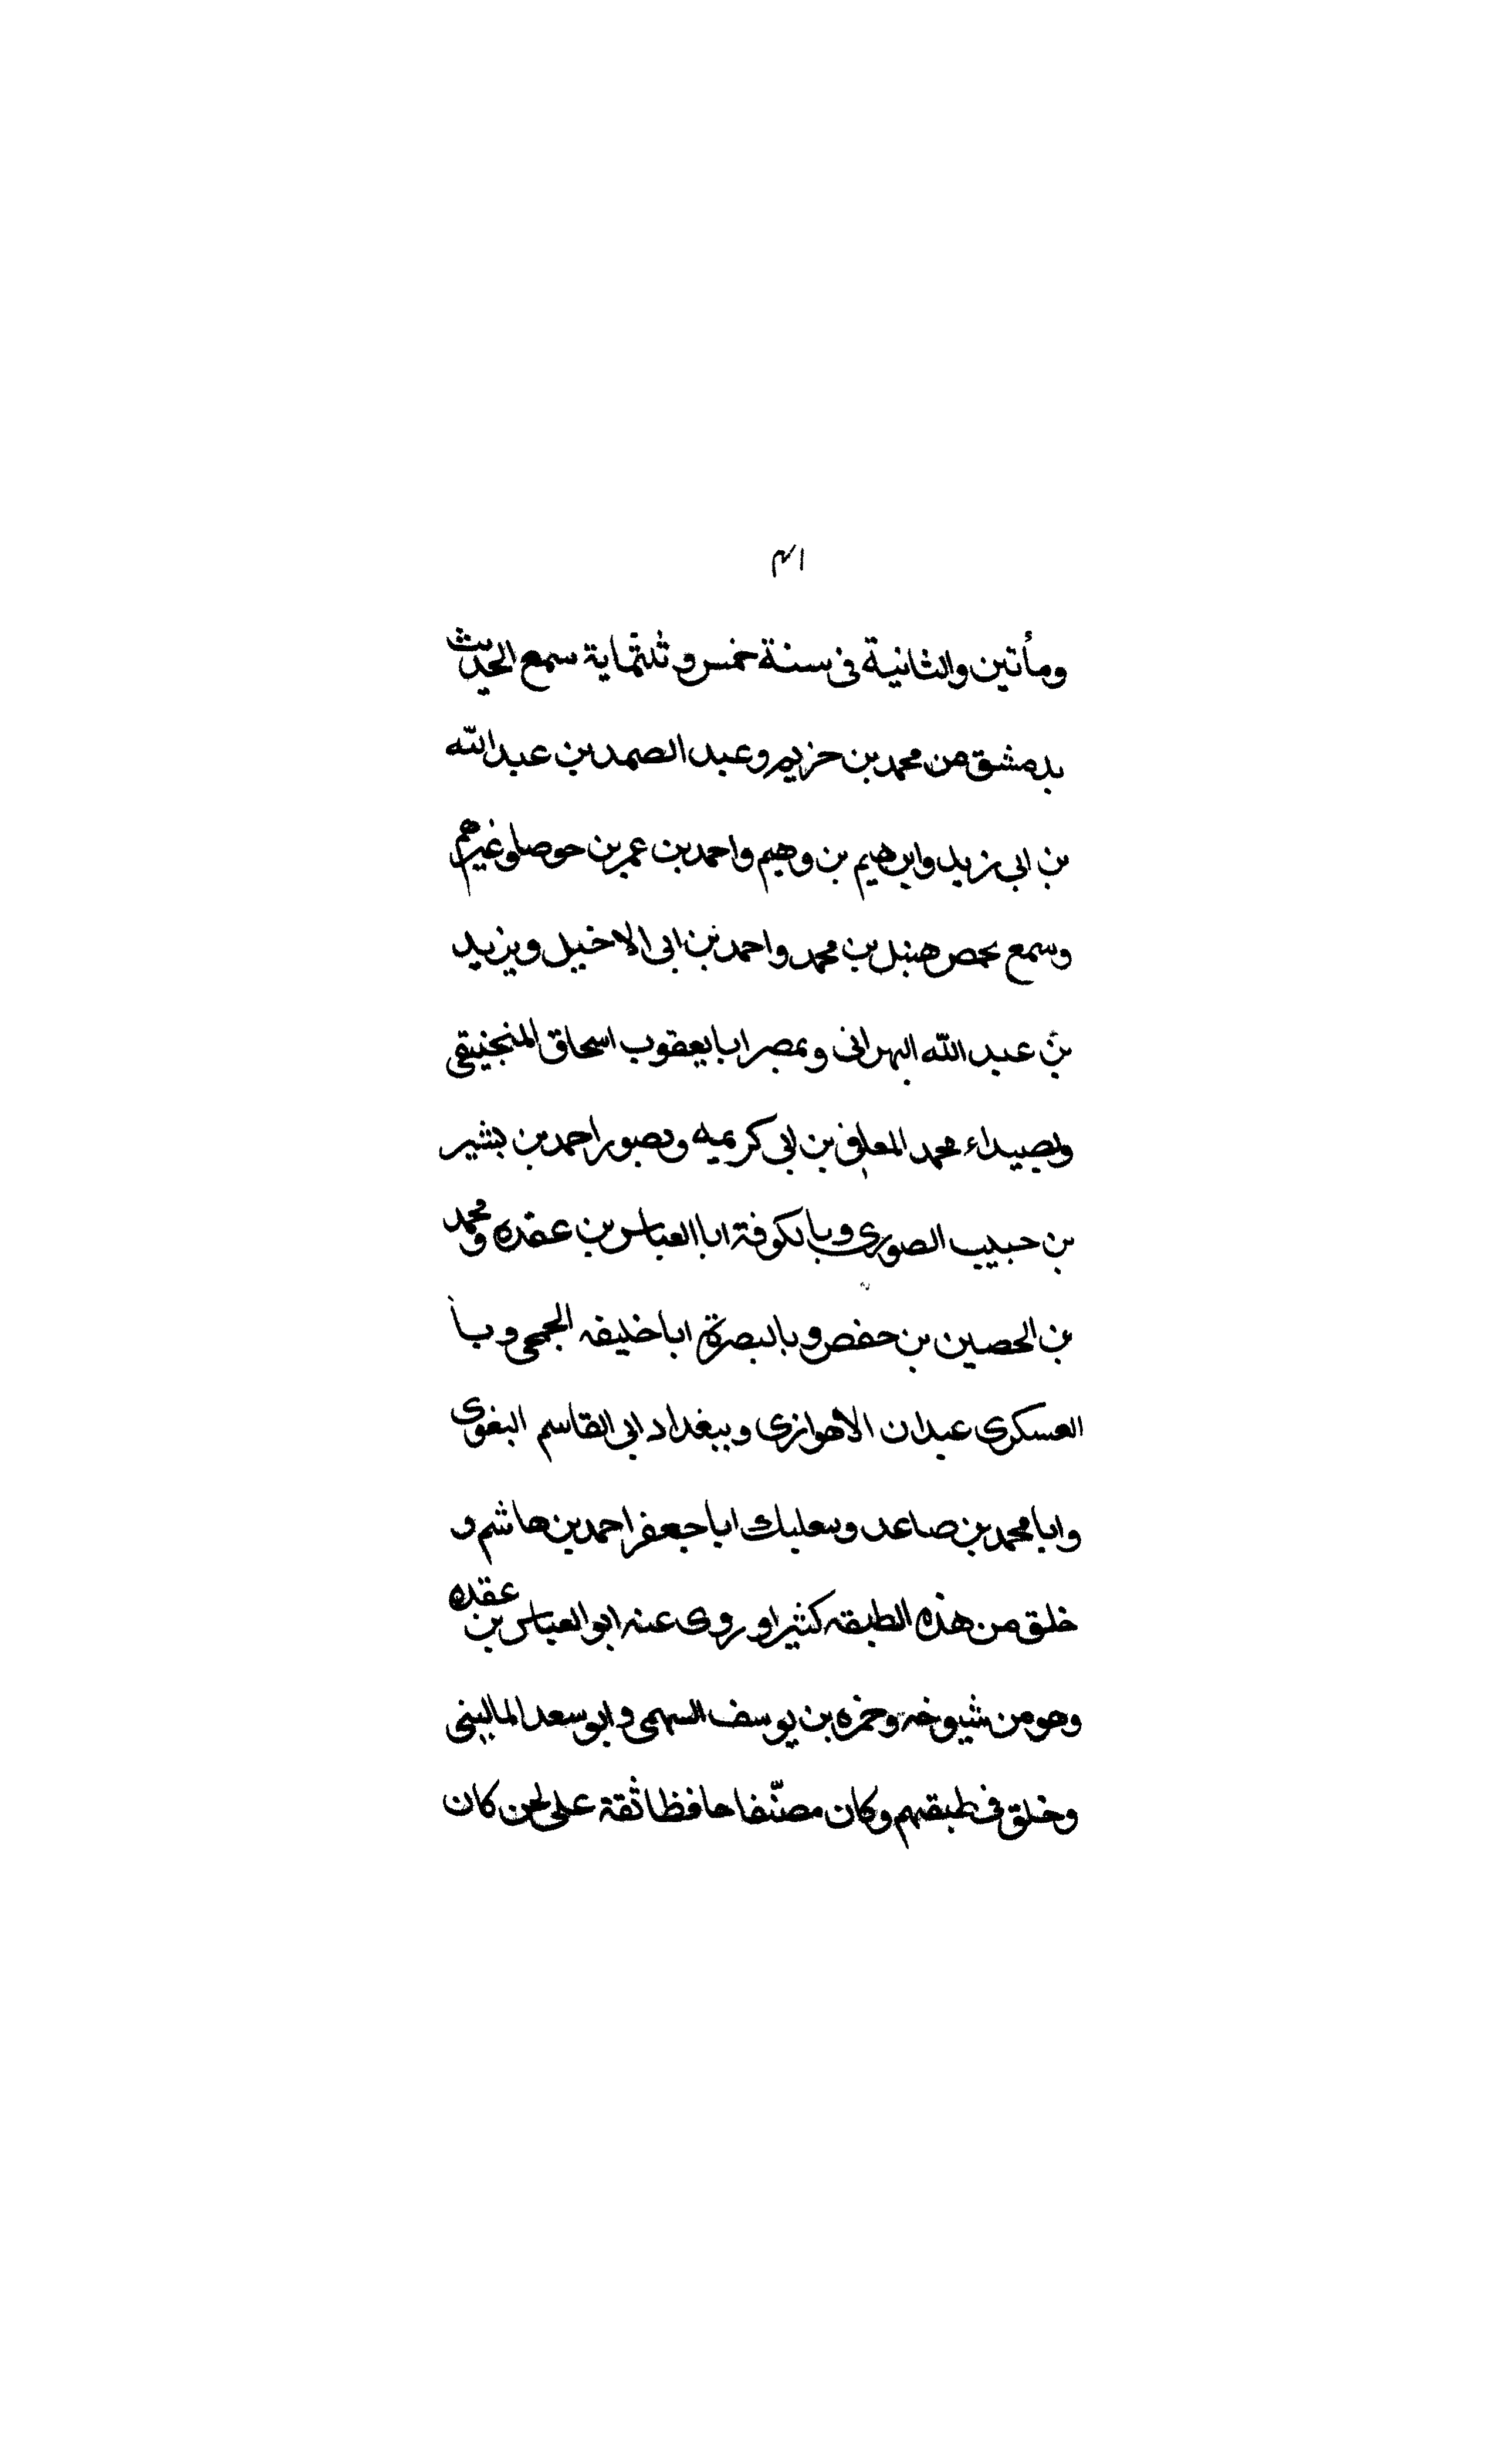 ١٤
ومأتين والثانية فى سنة خمس و ثلثماية سمع الحديث
بدمشق من محمد بن خزيم وعبد الصمد بن عبد الله
بن ابى زيد وابرهيم بن وهيم واحمد بن عمر بن حوصلو غيرهم
وسمع بحمص هنبل بن محمد واحمد بن ابى الاخيل ويزيد
بن عبد الله البهرانى وبمصر ابا يعقوب اسحاق المنجنيقى
وبصيداء محمد المعافى بن ابى كريمه وبصور احمد بن بشير
بن حبيب الصورى وبالكوفة ابا العباس بن عقده ومحمد
بن الحصين بن حفص وبالبصرة ابا خليفه الجمحى وبا
العسكرى عبدان الاهوازى وببغداد ابى القاسم البغوى
وابا محمد بن صاعد وببعلبك ابا جعفر احمد بن هاشم و
خلق من هذه الطبقه كثيرا و روى عنه ابو العباس بن عقده
وهو من شيوخه وحمزه بن يوسف السهمى وابو سعد المالينى
وخلق فى طبقهم وكان مصنّفا حافظا ثقة على لحن كان